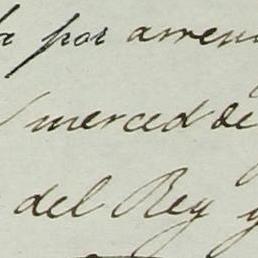 por arren
merced de
del Rey y